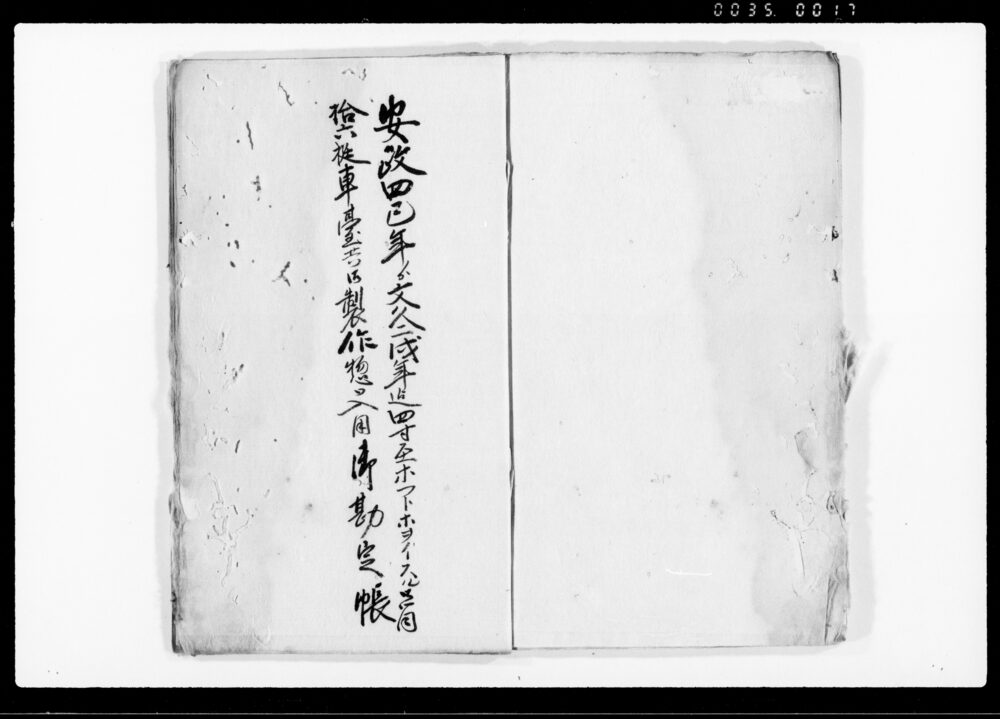 0035 0017
安政四巳年ゟ文久二戌年迄四寸径ホートホヲイスル共同
拾六挺車臺共御製作惣御入用御勘定帳